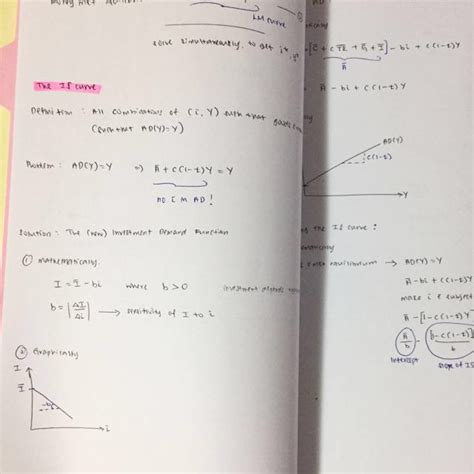 LM curve
solve simultaneously to get i*, Y*
The IS curve
Definition : All combinations of (i, Y) such that goods
(such that AD(Y) = Y)
Problem : AD(Y) = Y ⇒ Ā + c(1-t)Y = Y
NO i in AD!
Solution : The (new) Investment Demand Function
① Mathematically.
I = Ī - bi where b > 0
b = |ΔI/Δi| → sensitivity of I to i
② Graphically
I
Ī
-b
i
AD
- bi + c(1-t)
Ā
Ā - bi + c(1-t)Y
AD(Y)
c(1-t)
Y
the IS curve :
equilibrium → AD(Y) = Y
Ā - bi + c(1-t)
make i a subject
Ā - [1-c(1-t)]Y
Ā/b - [1-c(1-t)]/b
intercept
slope of IS